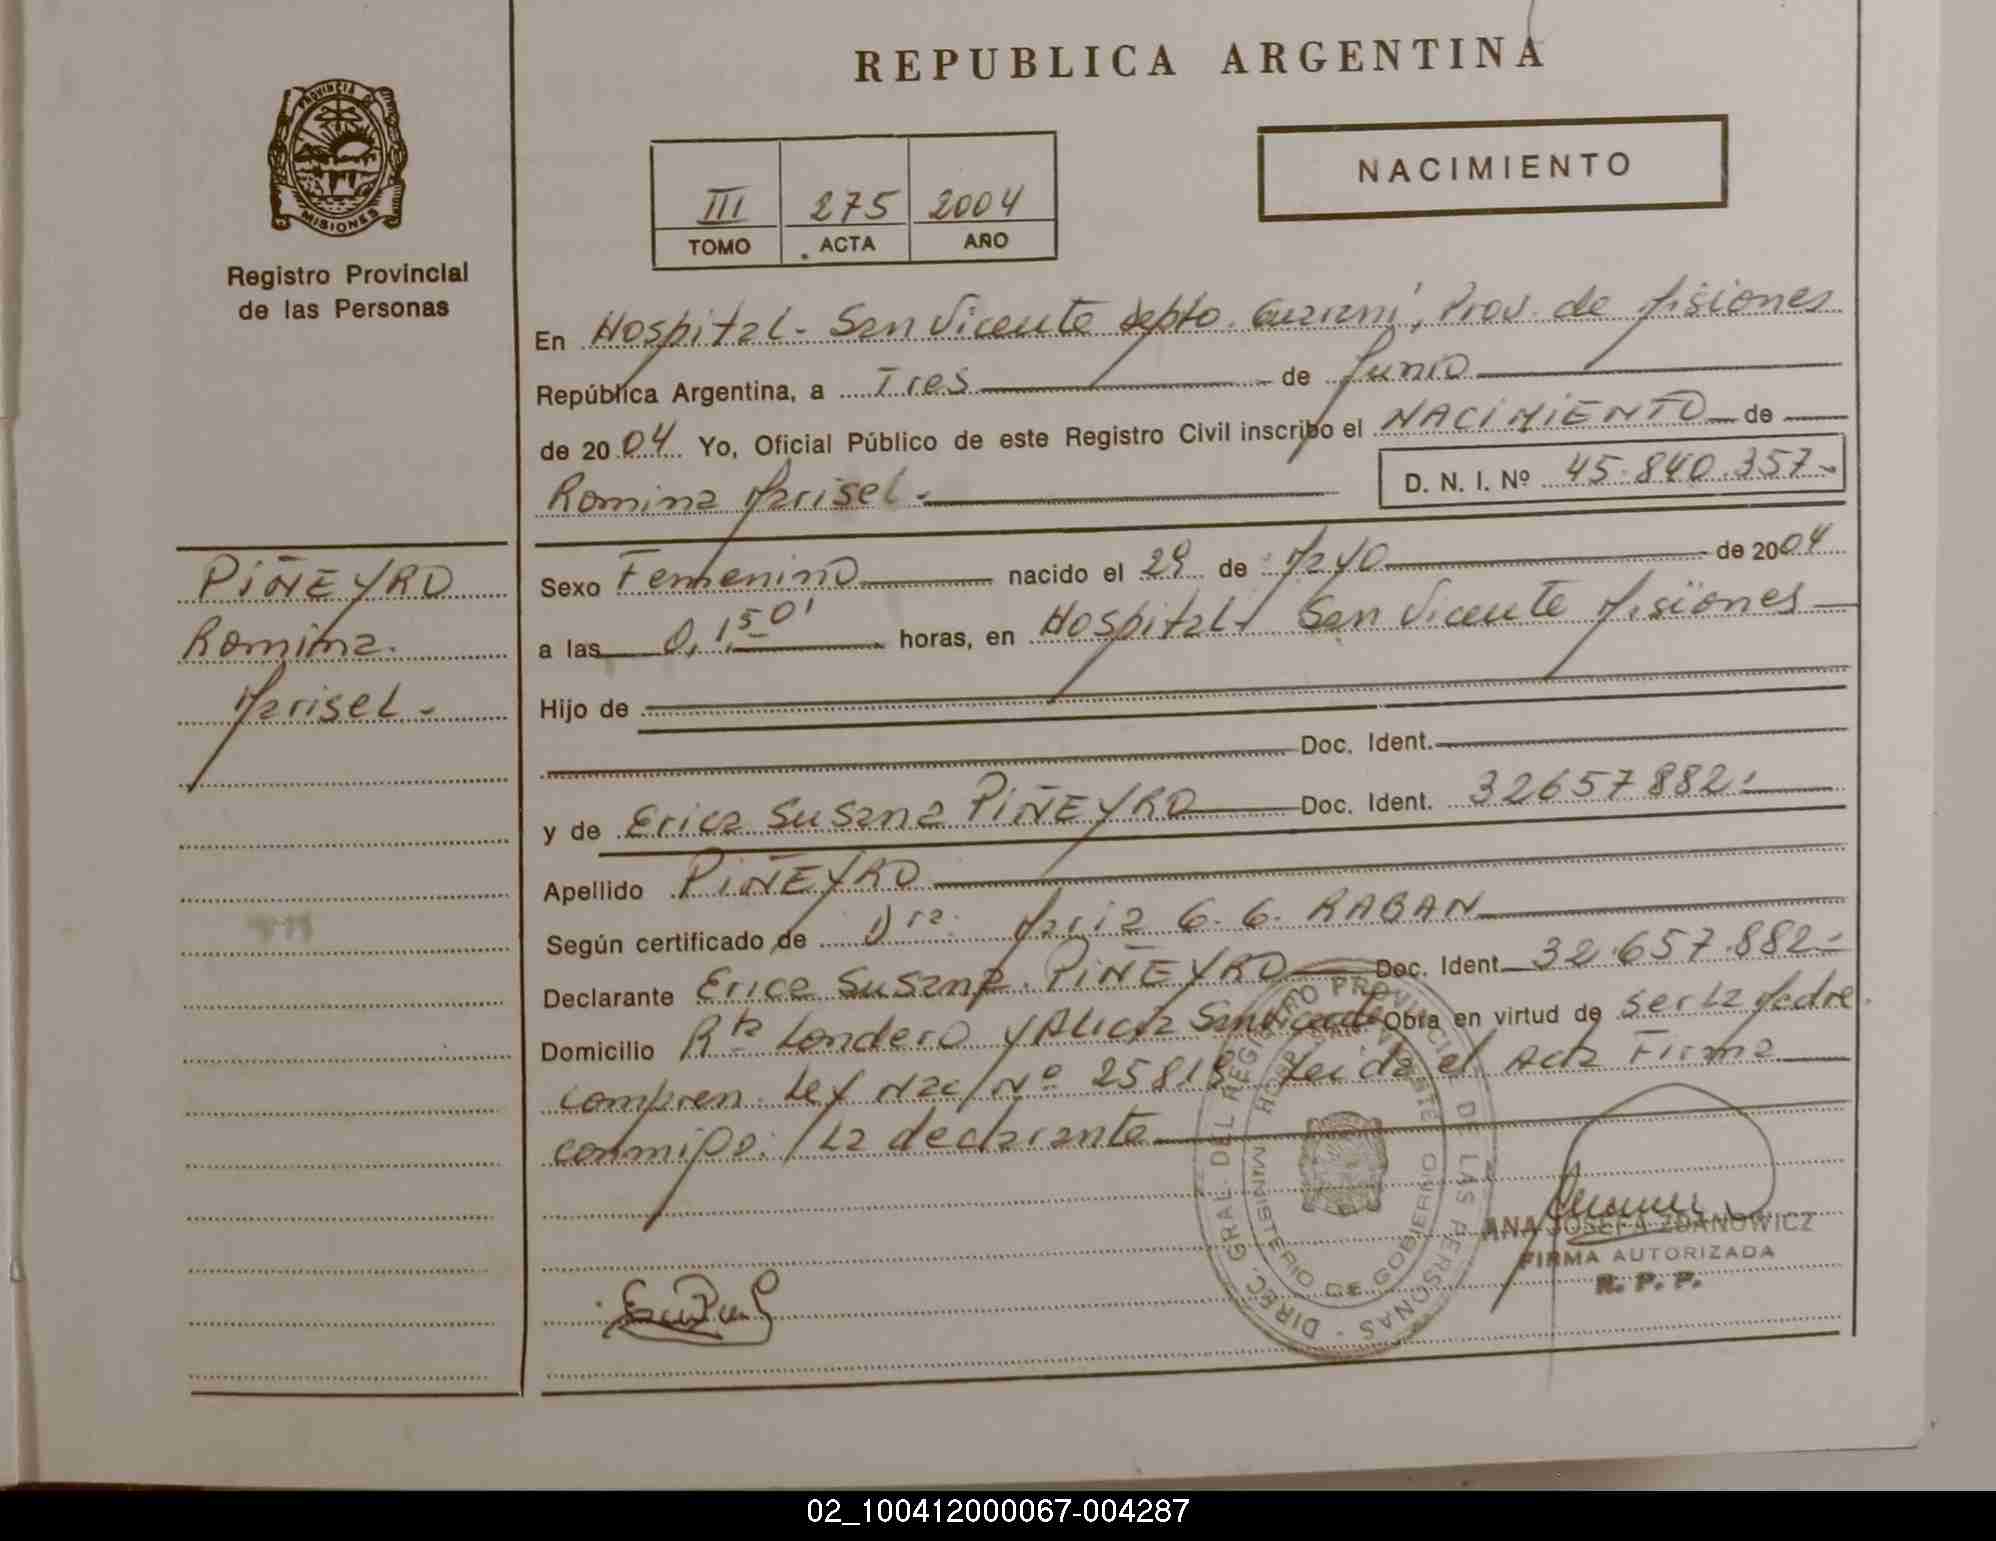 REPUBLICA ARGENTINA
PROVINCIA DE
MISIONES
Registro Provincial
de las Personas
III 275 2004
TOMO ACTA AÑO
NACIMIENTO
En Hospital - San Vicente Depto. Guaraní, Prov. de Misiones
República Argentina, a Tres de Junio
de 2004 Yo, Oficial Público de este Registro Civil inscribo el NACIMIENTO de
Romina Marisel.- D. N. I. Nº 45.840.357.-
PIÑEYRO
Romina
Marisel.-
Sexo Femenino nacido el 29 de Mayo de 2004
a las 0,1,50' horas, en Hospital San Vicente Misiones
Hijo de
Doc. Ident.
y de Erica Susana PIÑEYRO Doc. Ident. 32657882.-
Apellido PIÑEYRO
Según certificado de Dra. Maria G. G. RABAN
Declarante Erica Susana PIÑEYRO Doc. Ident. 32.657.882.-
Domicilio Rta Londero y Alicia Obra en virtud de ser la Madre.
compren. Ley Nac Nº 25818 Leida el Acta Firma
conmigo: la declarante
DIREC. GRAL. DEL REGISTRO PROVINCIAL DE LAS PERSONAS
MINISTERIO DE GOBIERNO
ANA JOSEFA ZDANOWICZ
FIRMA AUTORIZADA
R. P. P.
02_100412000067-004287